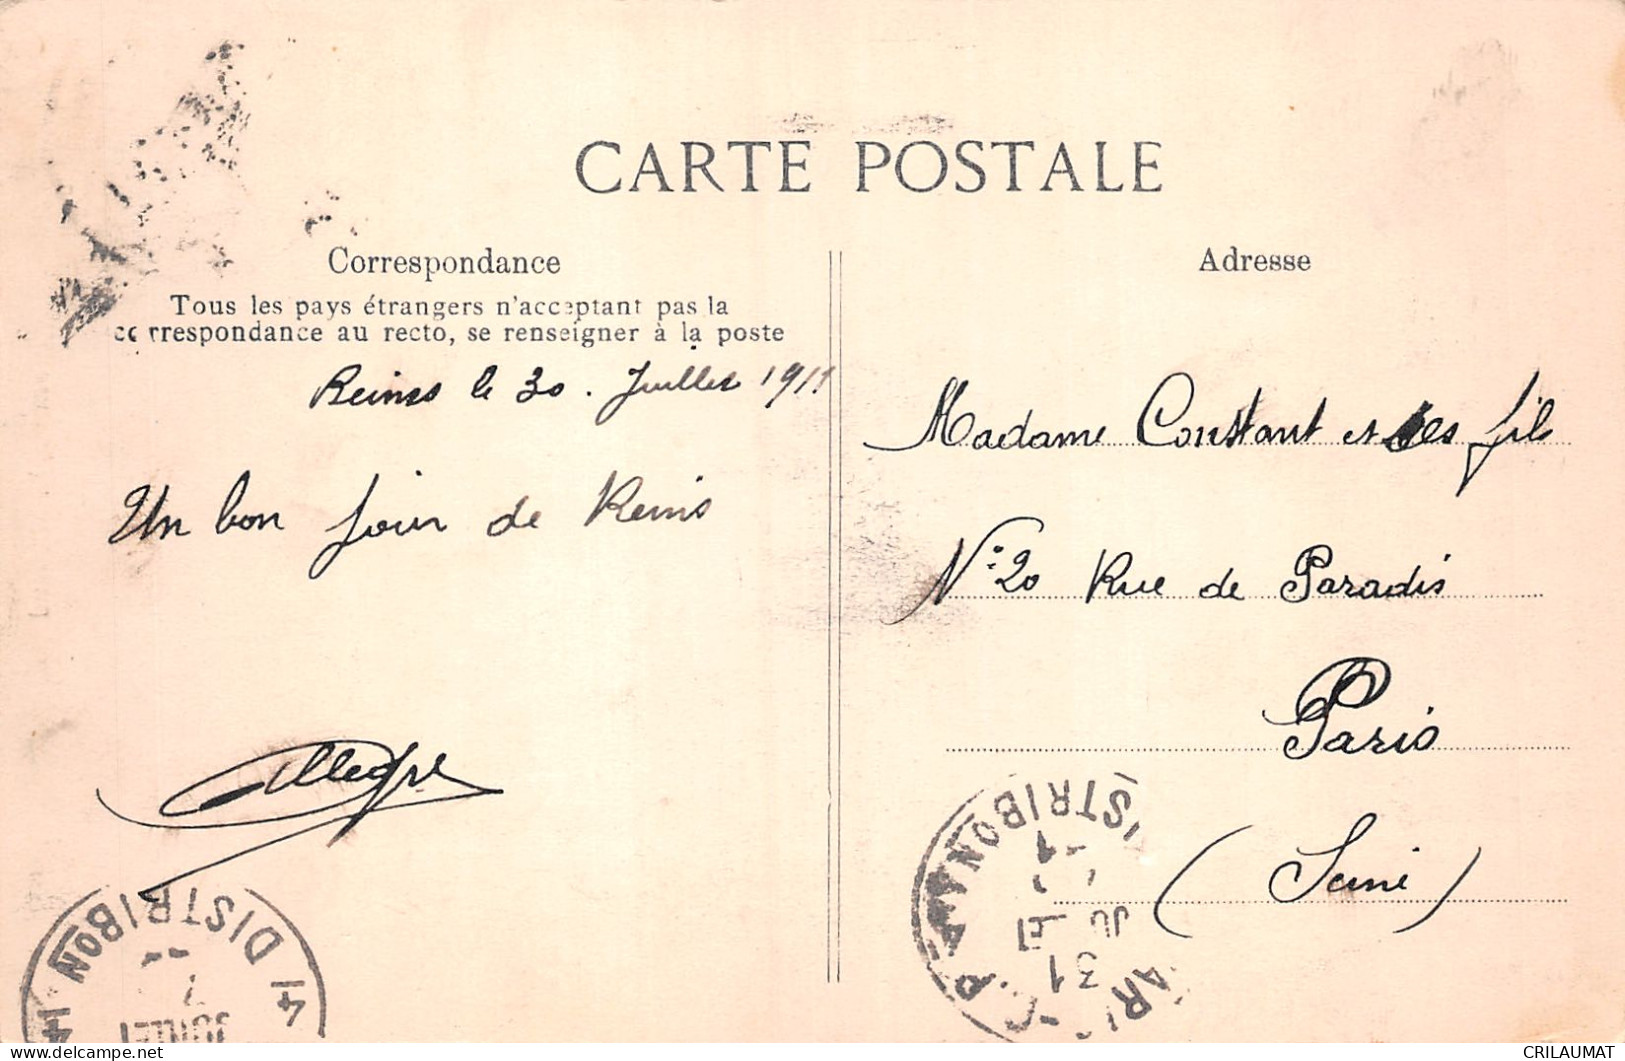 CARTE POSTALE
Correspondance
Tous les pays étrangers n'acceptant pas la
correspondance au recto, se renseigner à la poste
Reims le 30. Juillet 1911
Un bon jour de Reims
Allegre
Adresse
Madame Constant et ses fils
N° 20 Rue de Paradis
Paris
(Seine)
DISTRIBON
14
JUILLET
31
DISTRIBON
CRILAUMAT